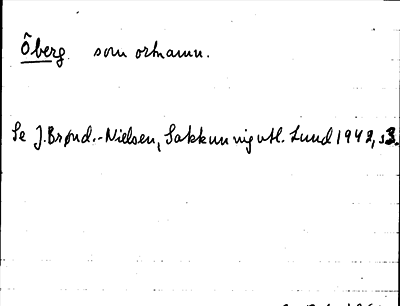 Öberg som ortnamn.
Se J. Brønd.-Nielsen, Sakkunnigutl. Lund 1942, s3.